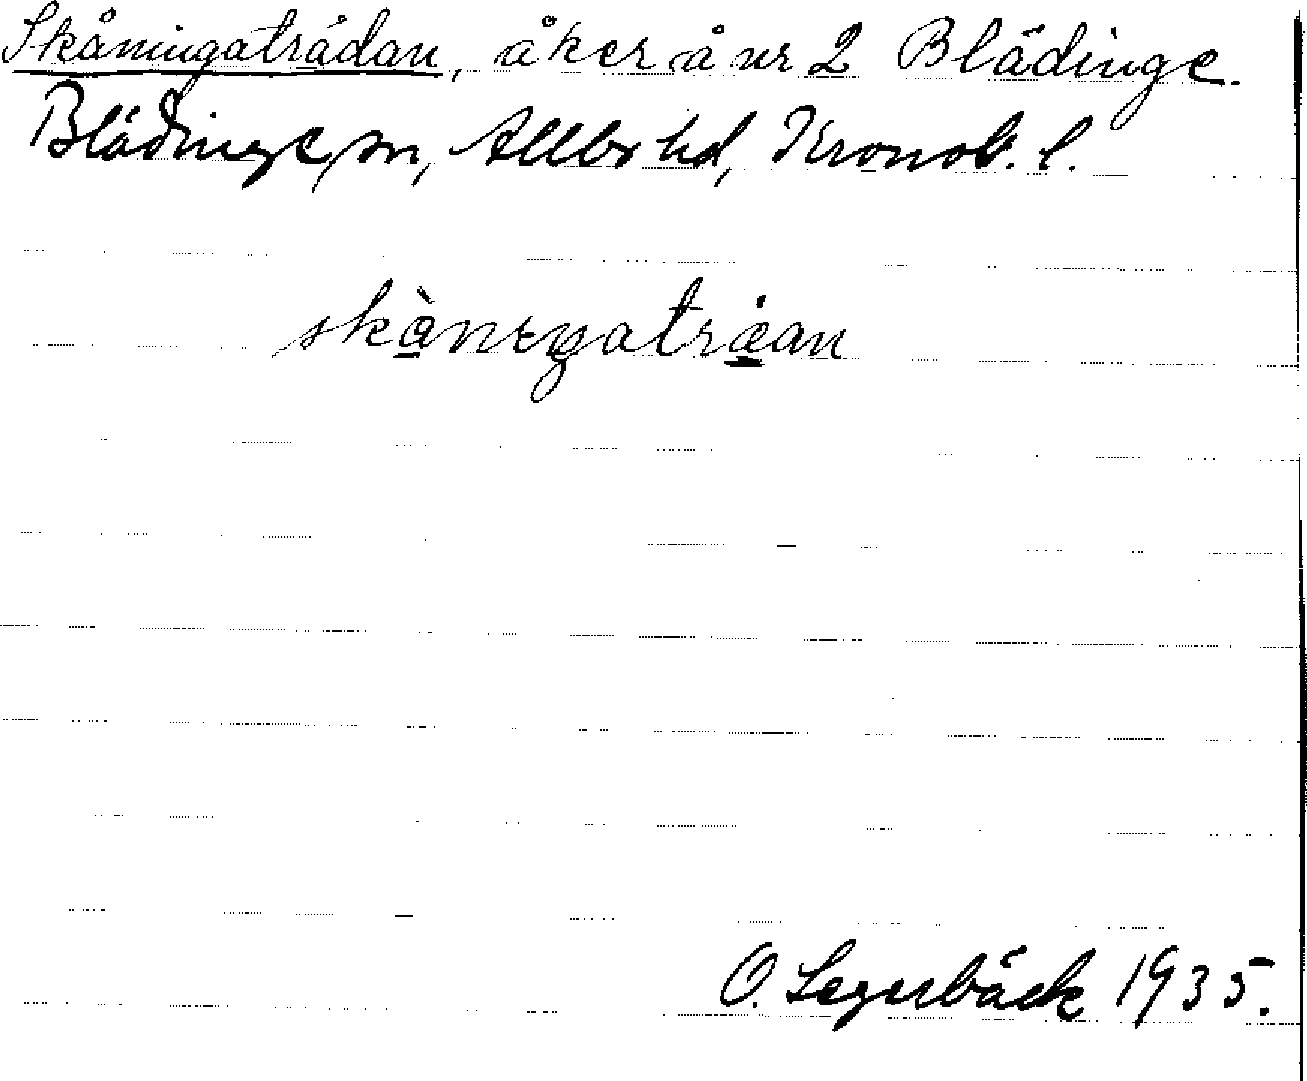 Skåningatrådan, åker å nr 2 Blädinge.
Blädinge sn, Allbo hd, Kronob. l.
skànɩŋatråan
O. Segerbäck 1935.